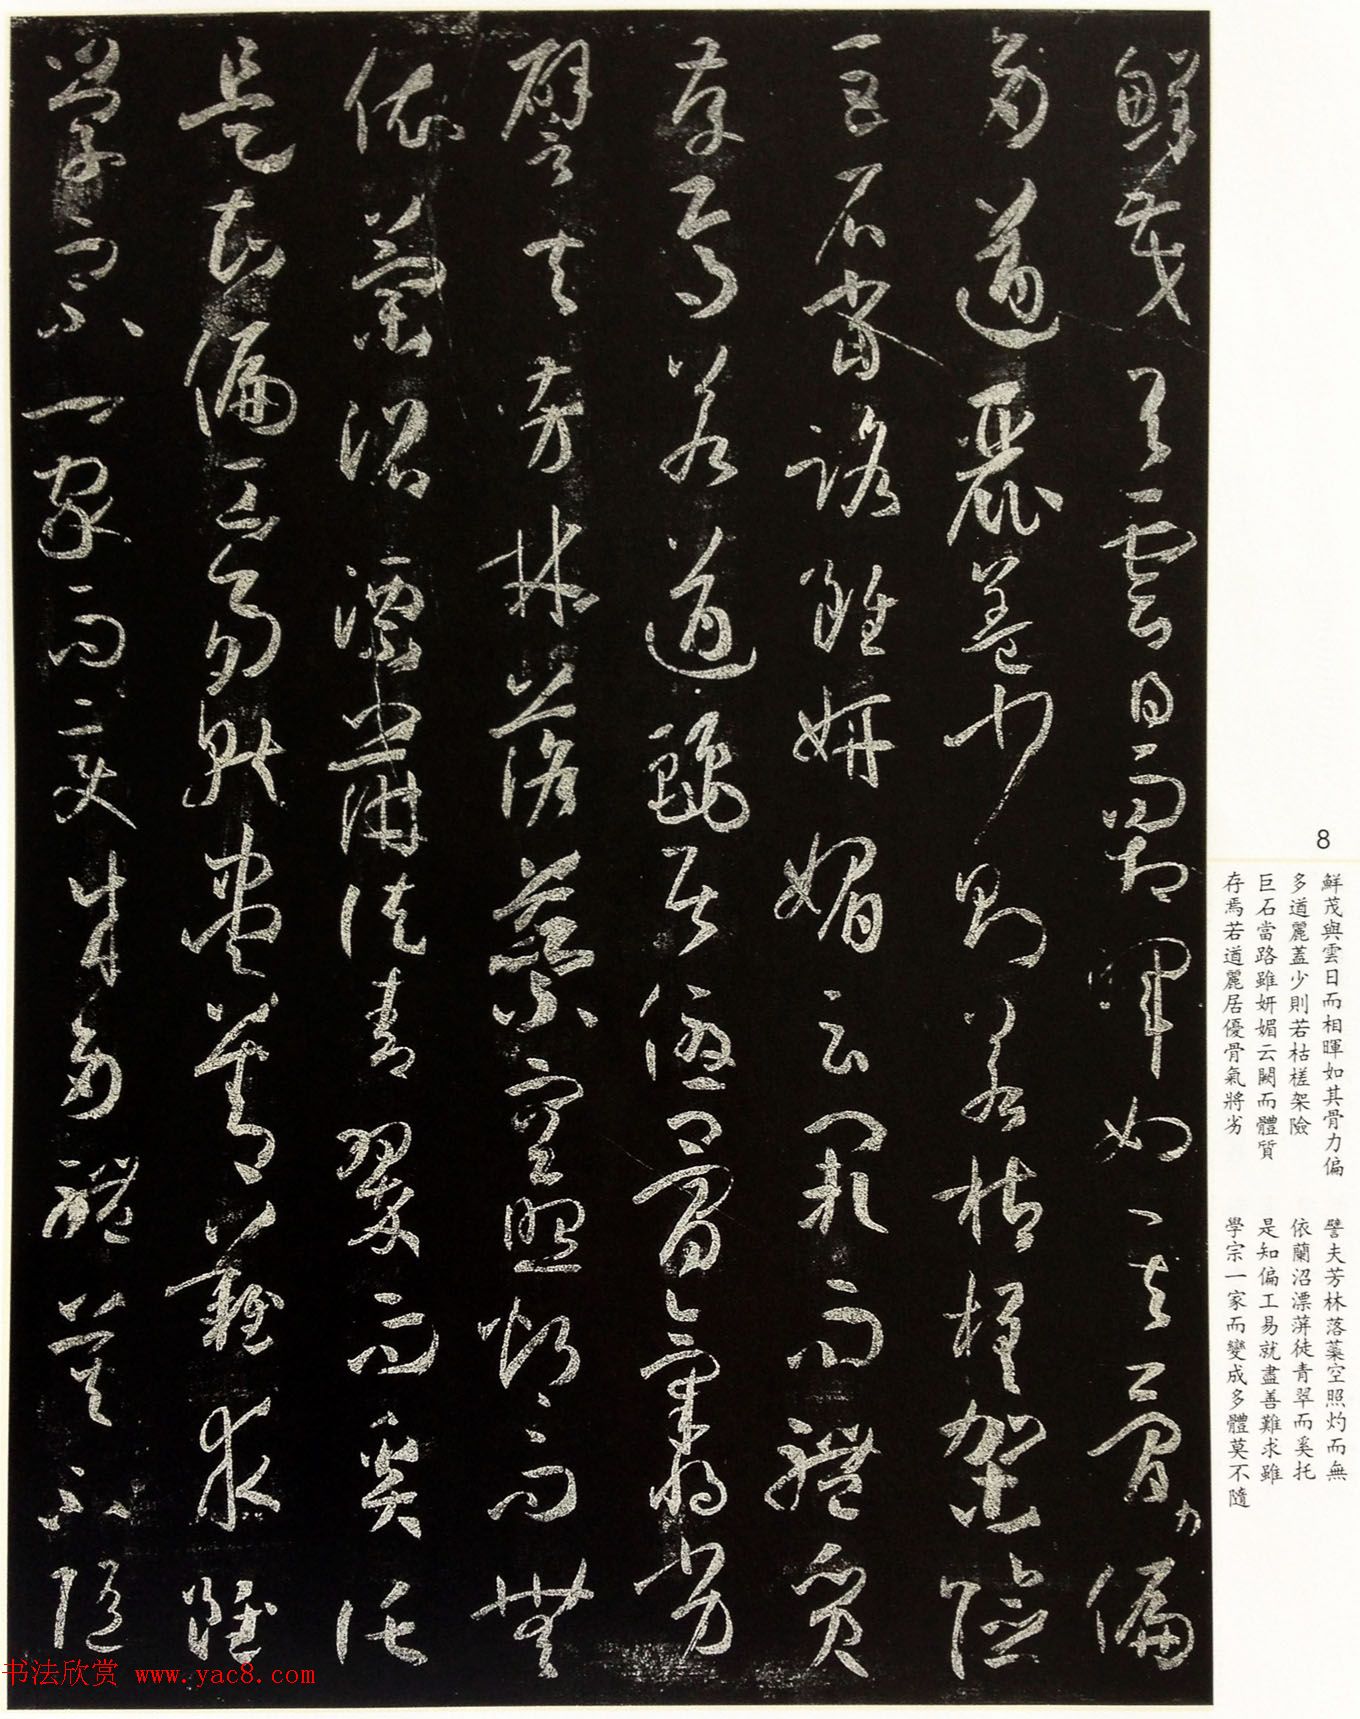 鮮茂與雲日而相暉如其骨力偏
多遒麗蓋少則若枯槎架險
巨石當路雖妍媚云闕而體質
存焉若遒麗居優骨氣將劣
譬夫芳林落蘂空照灼而無
依蘭沼漂蓱徒青翠而奚托
是知偏工易就盡善難求雖
學宗一家而變成多體莫不隨
8
鮮茂與雲日而相暉如其骨力偏
多道麗蓋少則若枯槎架險
巨石當路雖妍媚云闕而體質
存焉若道麗居優骨氣將劣
譬夫芳林落蘂空照灼而無
依蘭沼漂蓱徒青翠而奚托
是知偏工易就盡善難求雖
學宗一家而變成多體莫不隨
书法欣赏 www.yac8.com